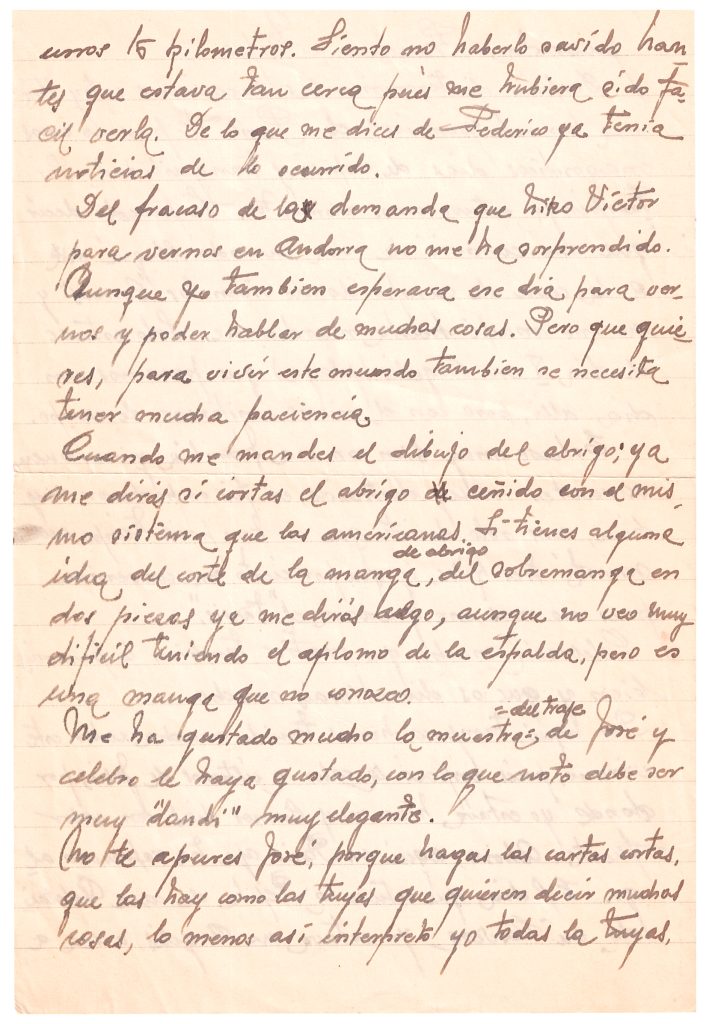 unos 15 kilometros. Siento no haberlo savido han-
tes que estava tan cerca pues me hubiera sido fa-
cil verla. De lo que me dices de Federico ya tenia
noticias de lo ocurrido.
Del fracaso de la demanda que hizo Víctor
para vernos en Andorra no me ha sorprendido.
Aunque yo tambien esperava ese dia para ver-
nos y poder hablar de muchas cosas. Pero que quie-
res, para vivir este mundo tambien se necesita
tener mucha paciencia.
Cuando me mandes el dibujo del abrigo; ya
me dirás si cortas el abrigo ceñido con el mis-
mo sistema que las americanas. Si tienes alguna
de abrigo
idea del corte de la manga, del sobremanga en
dos piezas ya me dirás algo, aunque no veo muy
dificil teniendo el aplomo de la espalda, pero es
una manga que no conozco.
=del traje
Me ha gustado mucho la muestra= de José y
celebro le haya gustado, con lo que noto debe ser
muy "dandi" muy elegante.
No te apures José, porque hagas las cartas cortas,
que las hay como las tuyas que quieren decir muchas
cosas, lo menos así interpreto yo todas la tuyas.